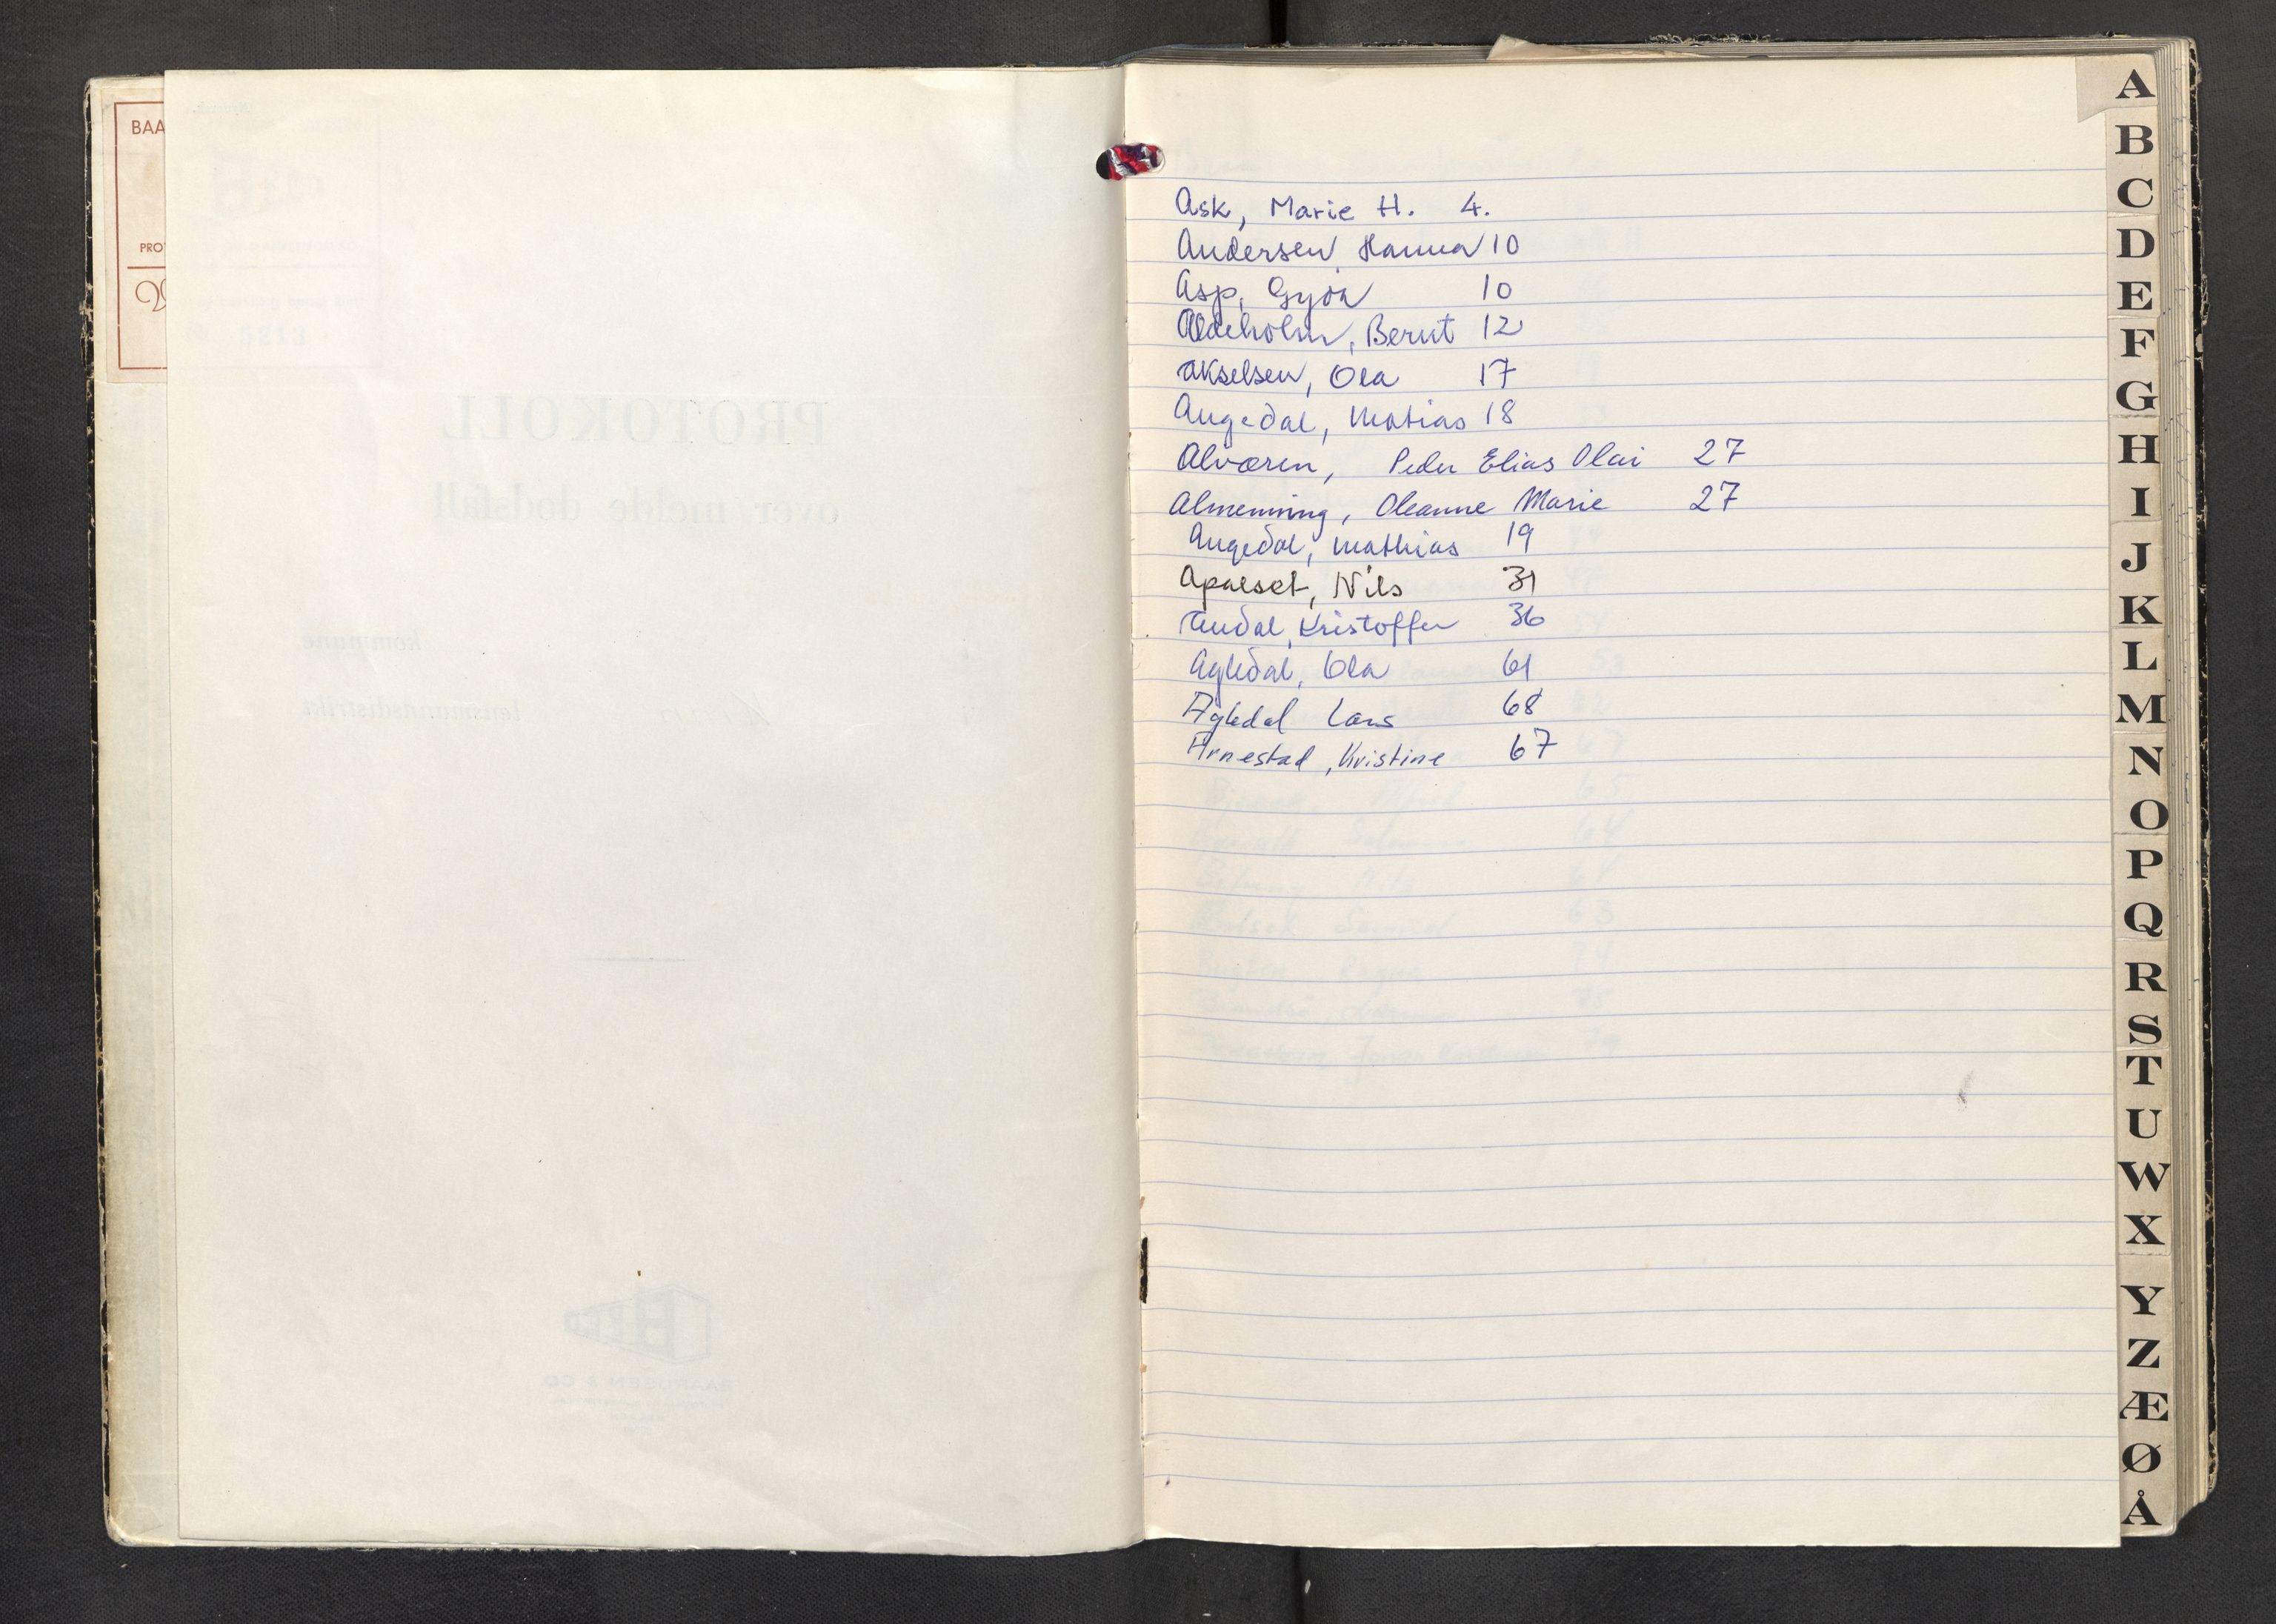 BAA
PRO
Ask, Marie H. 4.
Andersen, Hanna 10
Asp, Gyða 10
Aldeholm, Bernt 12
Akselsen, Ola 17
Angedal, Matias 18
Alværen, Peder Elias Olai 27
Almenning, Oleanne Marie 27
Angedal, Mathias 19
Apalset, Nils 31
Andal, Kristoffer 36
Agledal, Ola 61
Agledal Lars 68
Arnestad, Kristine 67
A
B
C
D
E
F
G
H
I
J
K
L
M
N
O
P
Q
R
S
T
U
W
X
Y
Z
Æ
Ø
Å
PROTOKOLL
over melde dødsfall
kommune
lensmannsdistrikt
5813